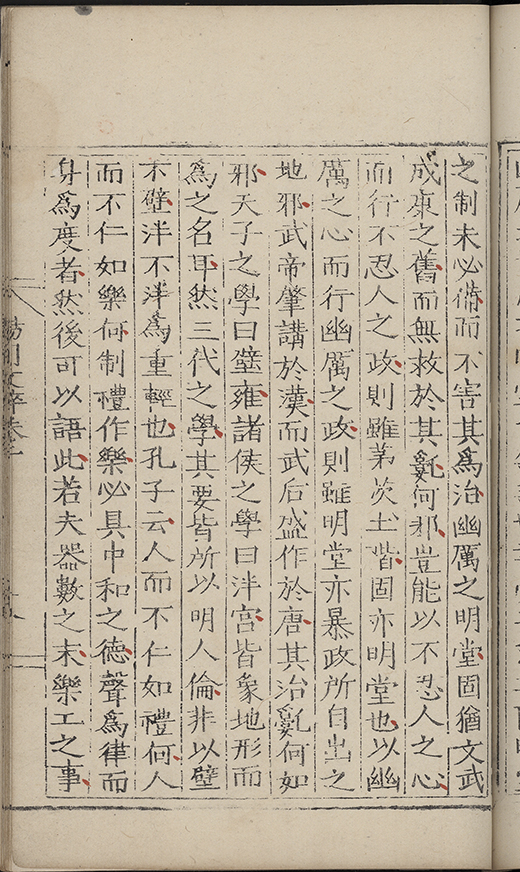 之制未必備而不害其爲治幽厲之明堂固猶文武
成康之舊而無救於其亂何邪豈能以不忍人之心
而行不忍人之政則雖茅茨土階固亦明堂也以幽
厲之心而行幽厲之政則雖明堂亦暴政所自出之
地邪武帝肇講於漢而武后盛作於唐其治亂何如
邪天子之學曰壁雍諸侯之學曰泮宫皆象地形而
爲之名耳然三代之學其要皆所以明人倫非以壁
不壁泮不泮爲重輕也孔子云人而不仁如禮何人
而不仁如樂何制禮作樂必具中和之德聲爲律而
身爲度者然後可以語此若夫器數之末樂工之事